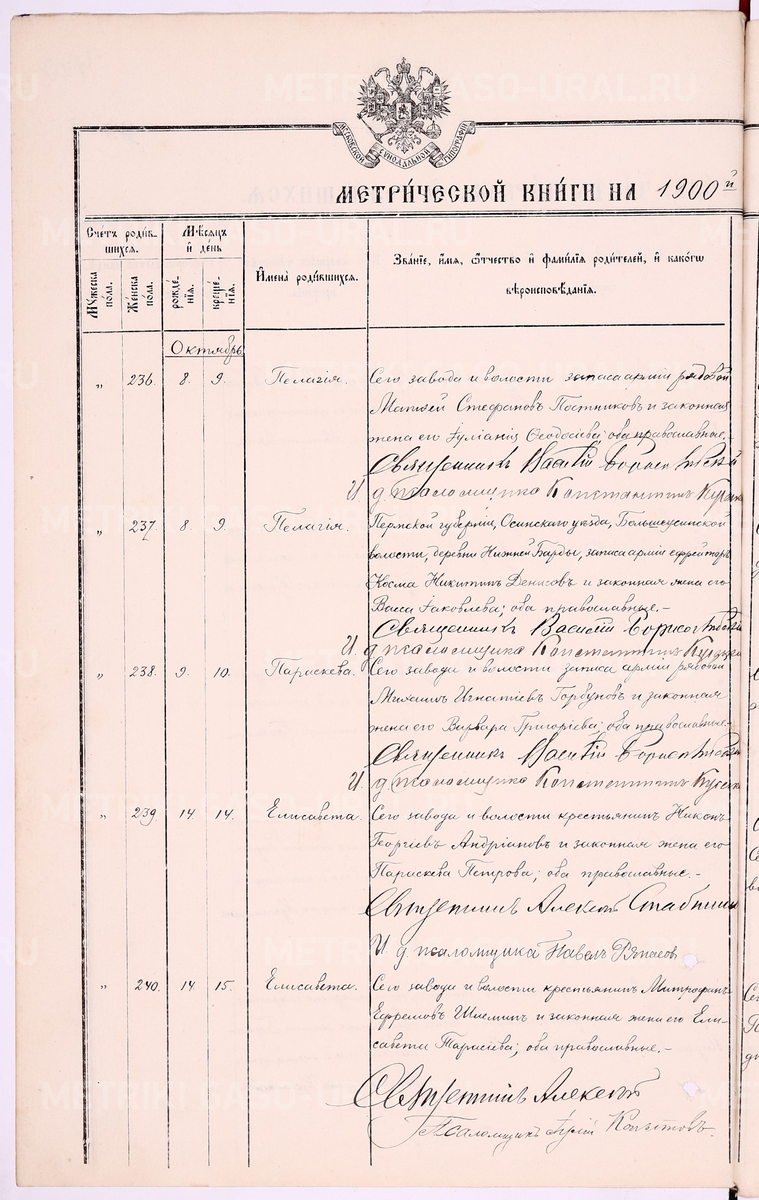 МОСКОВСКОЙ СѴНОДАЛЬНОЙ ТИПОГРАФІИ
МЕТРИ́ЧЕСКОЙ КНИ́ГИ НА 1900 й
Сче́тъ роди́в-
шихся.
Мꙋ́жеска
по́ла.
Же́нска
по́ла.
Мѣ́сяцъ
и҆ де́нь
рожде́-
нїя.
креще́-
нїя.
И҆мена̀ роди́вшихся.
Зва́нїе, и҆́мя, ѻ҆́тчество и҆ фами́лїя роди́телей, и҆ како́гѡ
вѣроисповѣ́данїя.
Октябрь
„ 236. 8. 9. Пелагія. Сего завода и волости запаса арміи рядовой
Матѳей Стефановъ Постниковъ и законная
жена его Іуліанія Ѳеодосіева; оба православные.-
Священникъ Василій
И д. псаломщика Константинъ
„ 237. 8 9. Пелагія. Пермской губерніи, Осинскаго уѣзда, Большеусинской
волости, деревни Нижней Барды, запаса арміи ефрейторъ
Косма Никитинъ Денисовъ и законная жена его
Васса Іаковлева; оба православные.-
Священникъ Василій
И. д. псаломщика Константинъ
„ 238. 9. 10. Параскева. Сего завода и волости запаса арміи рядовой
Михаилъ Игнатіевъ Горбуновъ и законная
жена его Варвара Григоріева; оба православные.-
Священникъ Василій
И. д. псаломщика Константинъ
„ 239 14 14. Елисавета. Сего завода и волости крестьянинъ Никонъ
Георгіевъ Андріановъ и законная жена его
Параскева Петрова; оба православные.-
Священникъ Алексей
И. д. псаломщика Павелъ
„ 240. 14 15. Елисавета. Сего завода и волости крестьянинъ Митрофанъ
Ефремовъ Шлеминъ и законная жена его Ели-
савета Тарасіева; оба православные.-
Священникъ Алексей
Псаломщикъ
METRIKI.GASO-URAL.RU